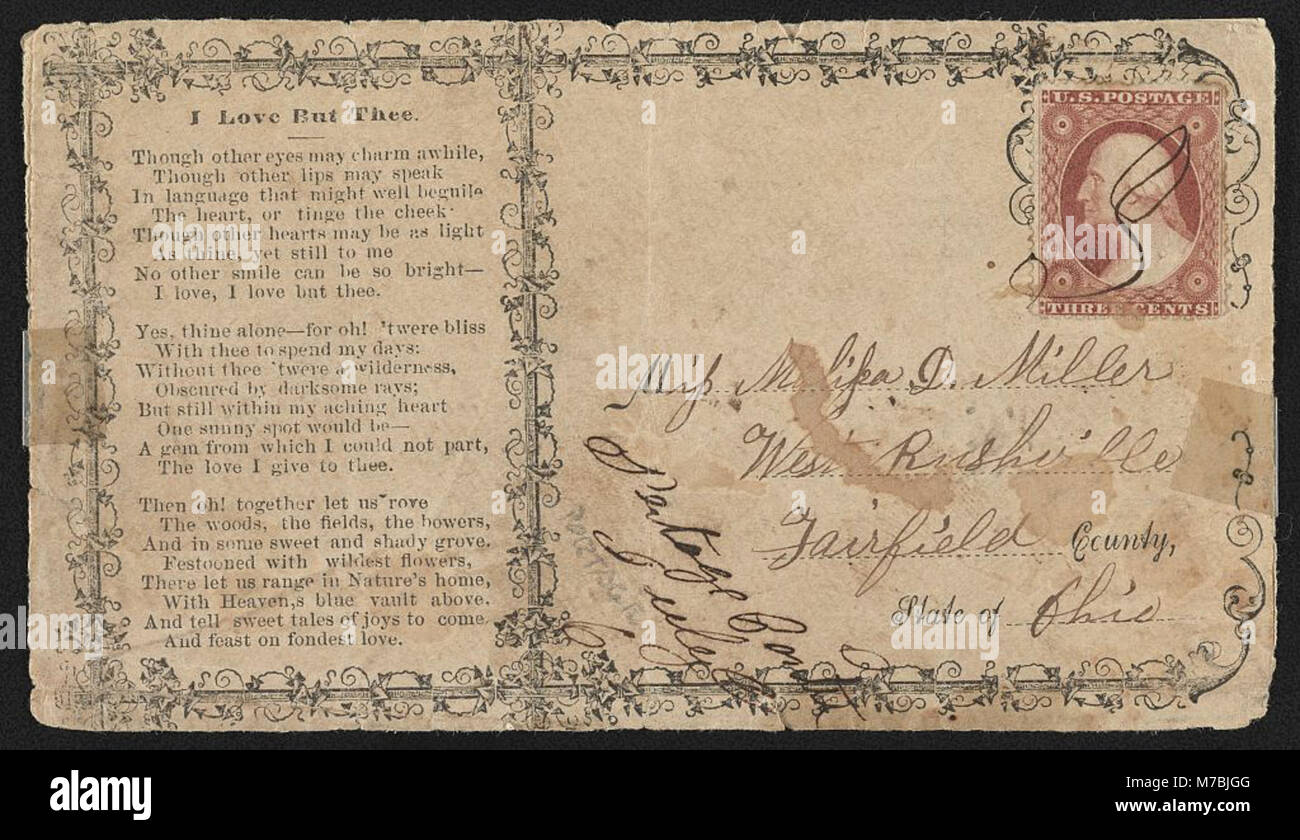 I Love But Thee.
Though other eyes may charm awhile,
Though other lips may speak
In language that might well beguile
The heart, or tinge the cheek·
Though other hearts may be as light
As thine, yet still to me
No other smile can be so bright—
I love, I love but thee.
Yes, thine alone—for oh! 'twere bliss
With thee to spend my days;
Without thee 'twere a wilderness,
Obscured by darksome rays;
But still within my aching heart
One sunny spot would be—
A gem from which I could not part,
The love I give to thee.
Then oh! together let us rove
The woods, the fields, the bowers,
And in some sweet and shady grove.
Festooned with wildest flowers,
There let us range in Nature's home,
With Heaven,s blue vault above.
And tell sweet tales of joys to come
And feast on fondest love.
U.S. POSTAGE
THREE CENTS
Miss Melissa D. Miller
West Rushville
Fairfield County,
State of Ohio
Portage
July
PORTAGE
alamy
Image ID: M7BJGG
www.alamy.com